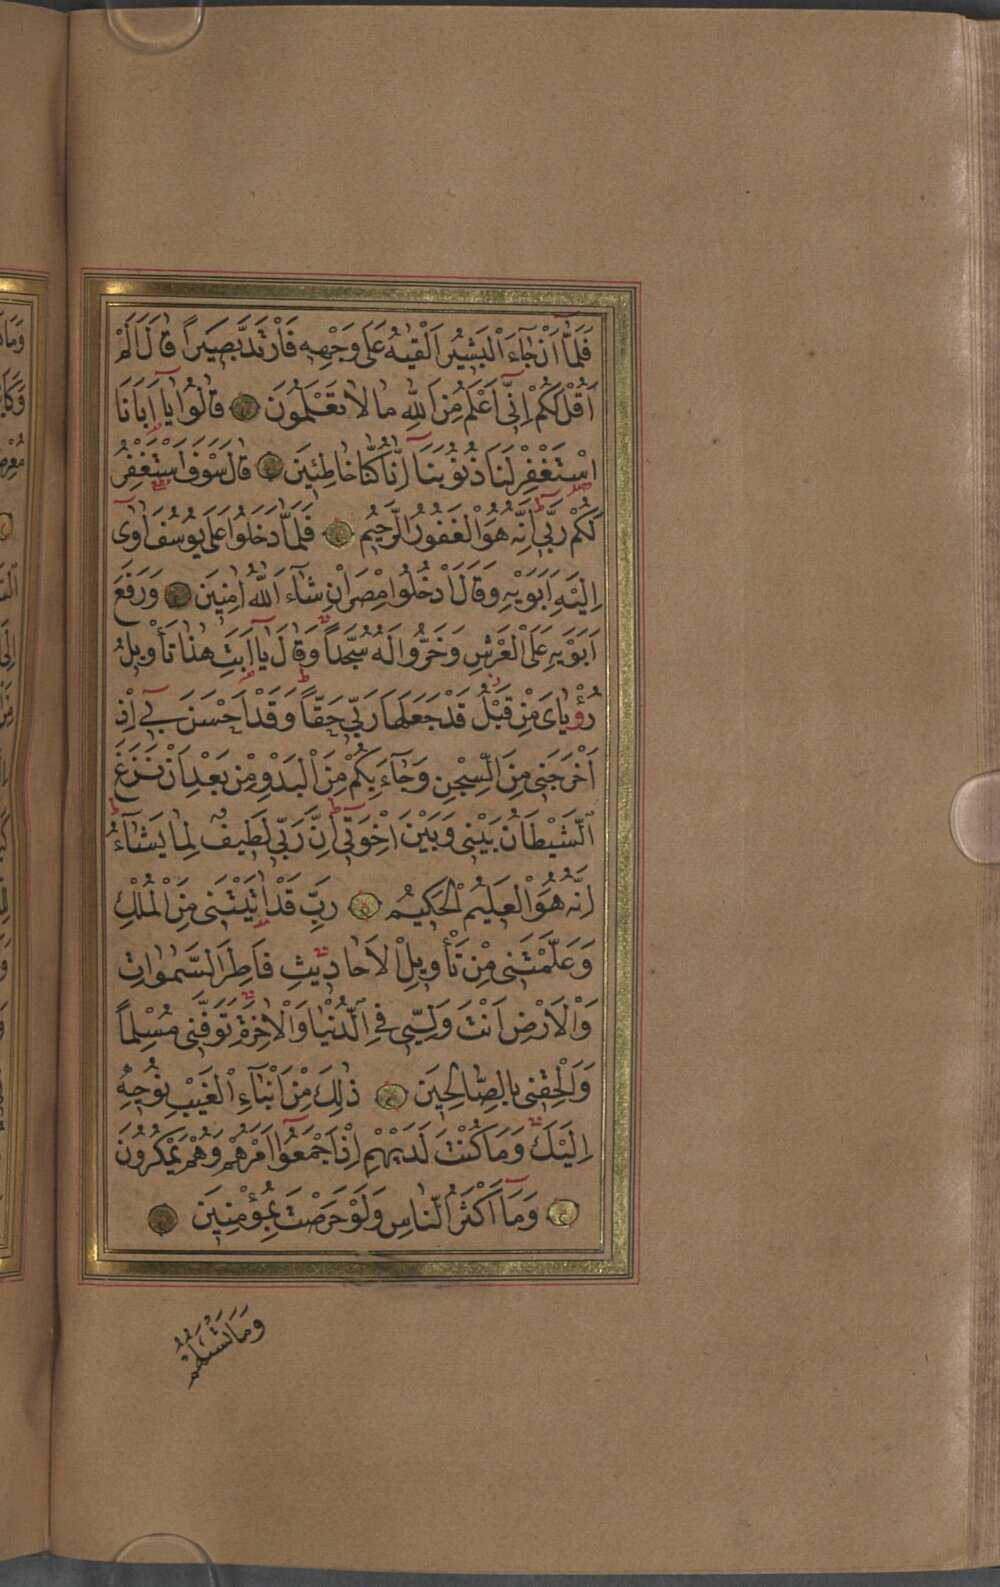 فَلَمَّا اَنْ جَٓاءَ الْبَشٖيرُ اَلْقٰيهُ عَلٰى وَجْهِهٖ فَارْتَدَّ بَصٖيرًا قَالَ اَلَمْ
اَقُلْ لَكُمْ اِنّٖٓى اَعْلَمُ مِنَ اللّٰهِ مَا لَا تَعْلَمُونَ قَالُوا يَٓا اَبَانَا
اسْتَغْفِرْ لَنَا ذُنُوبَنَٓا اِنَّا كُنَّا خَاطِئٖينَ قَالَ سَوْفَ اَسْتَغْفِرُ
لَكُمْ رَبّٖى اِنَّهُ هُوَ الْغَفُورُ الرَّحٖيمُ فَلَمَّا دَخَلُوا عَلٰى يُوسُفَ اٰوٰٓى
اِلَيْهِ اَبَوَيْهِ وَقَالَ ادْخُلُوا مِصْرَ اِنْ شَٓاءَ اللّٰهُ اٰمِنٖينَ وَرَفَعَ
اَبَوَيْهِ عَلَى الْعَرْشِ وَخَرُّوا لَهُ سُجَّدًا وَقَالَ يَٓا اَبَتِ هٰذَا تَأْوٖيلُ
رُؤْيَاىَ مِنْ قَبْلُ قَدْ جَعَلَهَا رَبّٖى حَقًّا وَقَدْ اَحْسَنَ بٖٓى اِذْ
اَخْرَجَنٖى مِنَ السِّجْنِ وَجَٓاءَ بِكُمْ مِنَ الْبَدْوِ مِنْ بَعْدِ اَنْ نَزَغَ
الشَّيْطَانُ بَيْنٖى وَبَيْنَ اِخْوَتٖٓى اِنَّ رَبّٖى لَطٖيفٌ لِمَا يَشَٓاءُ
اِنَّهُ هُوَ الْعَلٖيمُ الْحَكٖيمُ رَبِّ قَدْ اٰتَيْتَنٖى مِنَ الْمُلْكِ
وَعَلَّمْتَنٖى مِنْ تَأْوٖيلِ الْاَحَادٖيثِ فَاطِرَ السَّمٰوَاتِ
وَالْاَرْضِ اَنْتَ وَلِيّٖى فِى الدُّنْيَا وَالْاٰخِرَةِ تَوَفَّنٖى مُسْلِمًا
وَاَلْحِقْنٖى بِالصَّالِحٖينَ ذٰلِكَ مِنْ اَنْبَٓاءِ الْغَيْبِ نُوحٖيهِ
اِلَيْكَ وَمَا كُنْتَ لَدَيْهِمْ اِذْ اَجْمَعُٓوا اَمْرَهُمْ وَهُمْ يَمْكُرُونَ
وَمَٓا اَكْثَرُ النَّاسِ وَلَوْ حَرَصْتَ بِمُؤْمِنٖينَ
وَمَا تَسْـَٔلُهُمْ